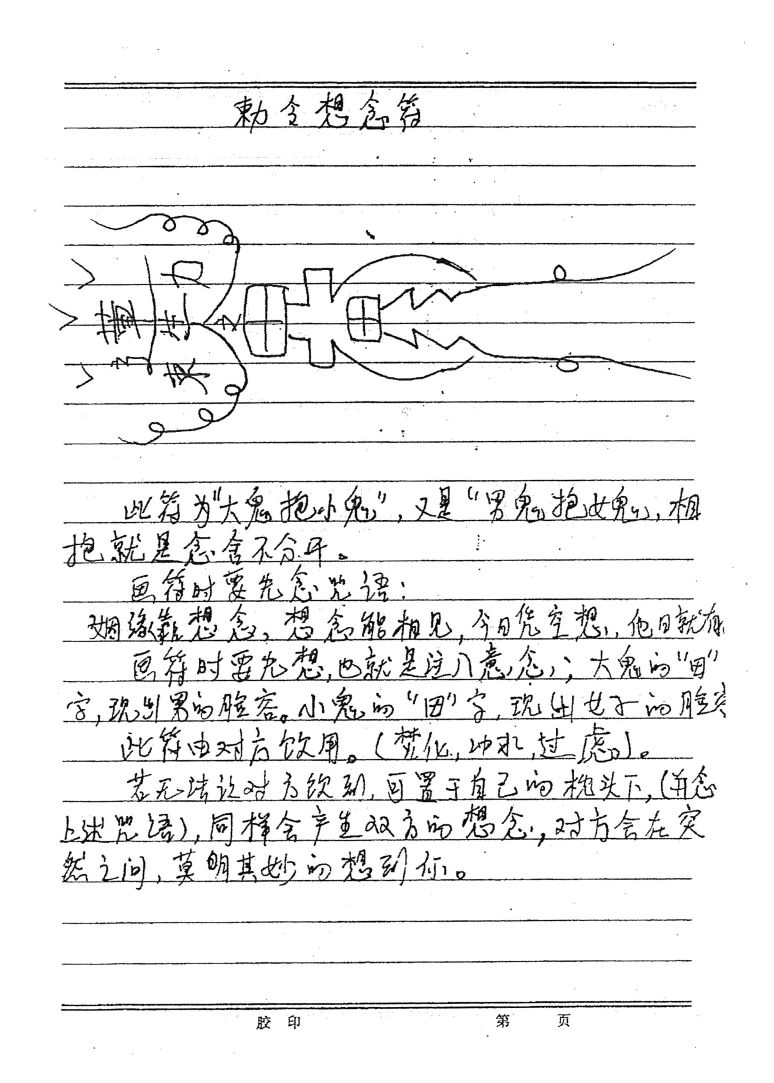 勅令想念符
此符为“大鬼抱小鬼”，又是“男鬼抱女鬼，相
抱就是念舍不分开。
画符时要先念咒语：
姻缘靠想念，想念能相见，今日凭空想，他日就有
画符时要先想，也就是注入意念；大鬼的“田”
字，现出男的脸容。小鬼的“田”字，现出女子的脸容
此符由对方饮用。（焚化，冲水，过虑）。
若无法让对方饮到，可置于自己的枕头下，（并念
上述咒语），同样会产生双方的想念，对方会在突
然之间，莫明其妙的想到你。
胶印 第 页